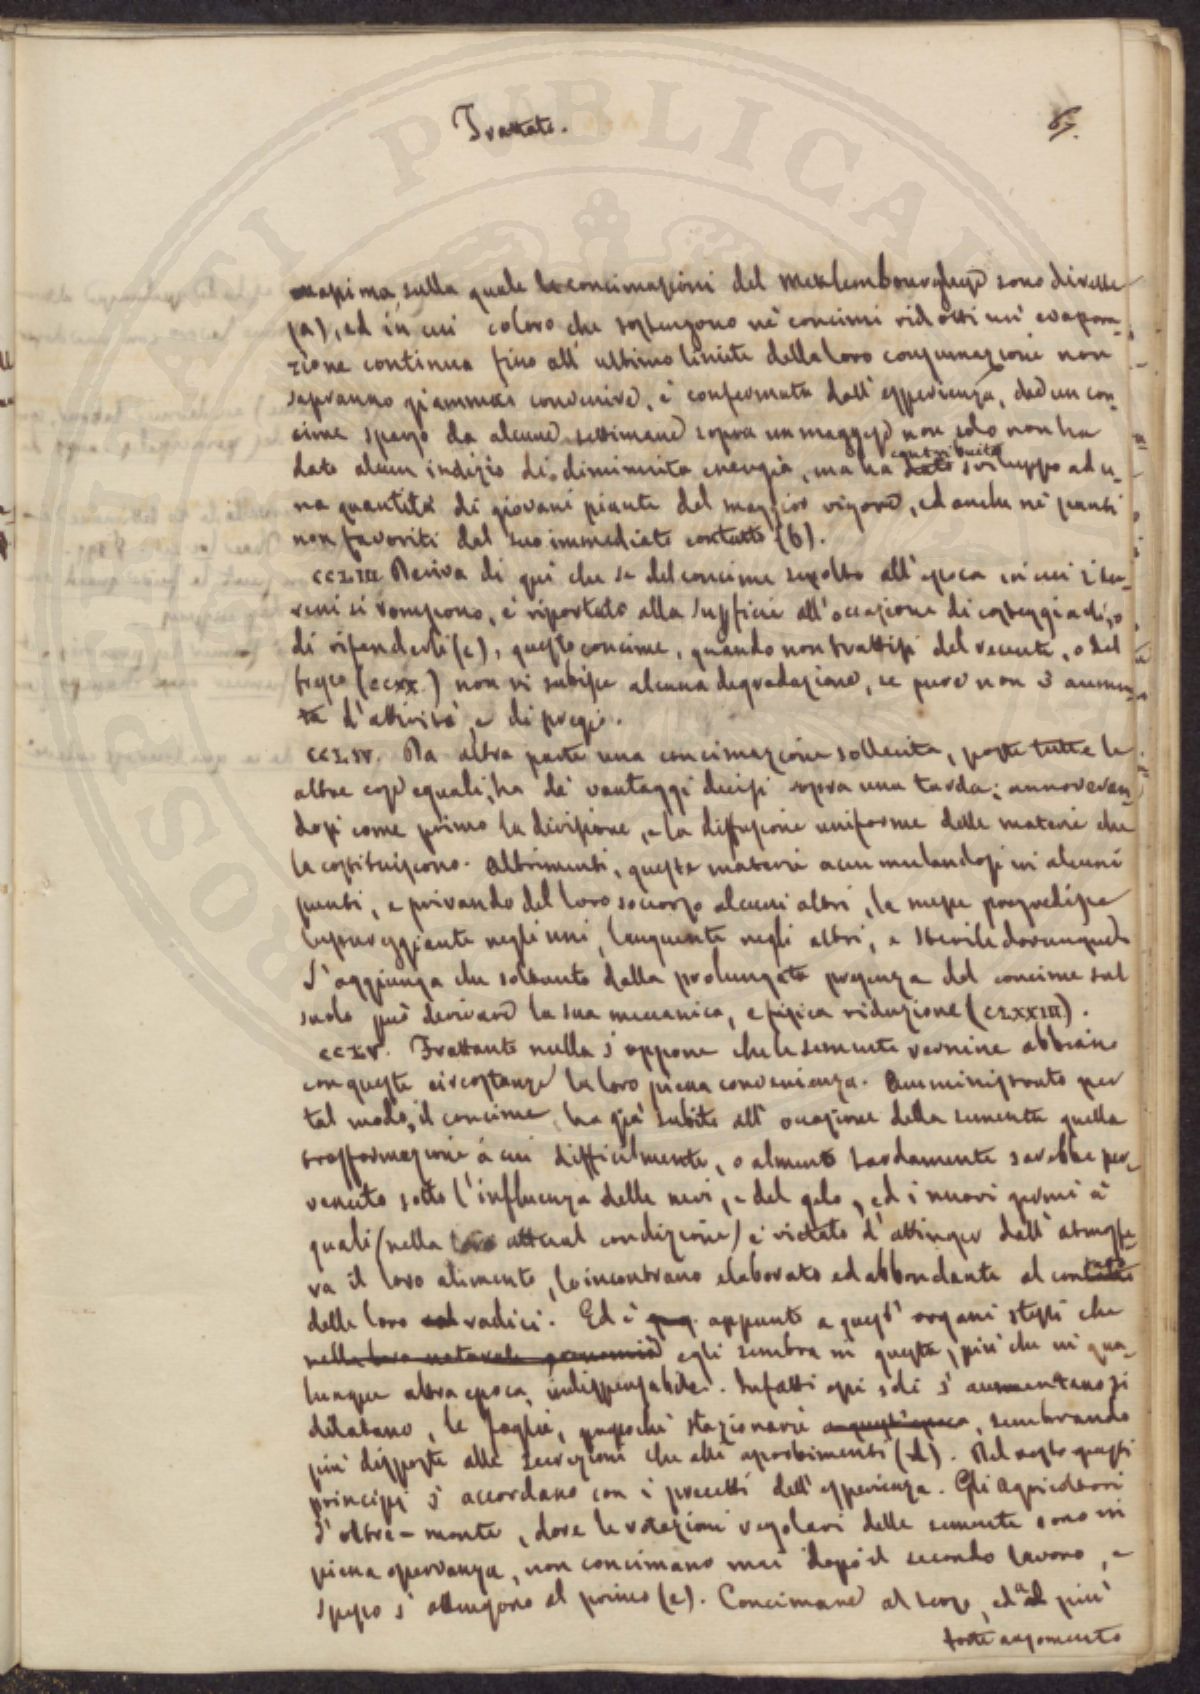 Trattato. 67.
massima sulla quale le concimazioni del Meklembourghese sono dirette
(a), ed in cui coloro che sostengono ne' concimi ridotti un' evapora-
zione continua fino all' ultimo limite della loro consumazione non
sapranno giammai convenire, è confermata dall' esperienza, ched un con-
cime sparso da alcune settimane sopra un maggese non solo non ha
dato alcun indizio di diminuita energia, ma ha dato contribuito sviluppo ad u-
na quantità di giovani piante del maggior vigore, ed anche ne' punti
non favoriti dal suo immediato contatto (b).
CCLIII Deriva di qui che se del concime sepolto all' epoca in cui i ter-
reni si rompono, è riportato alla superficie all' occasione di
di rifenderli (c), questo concime, quando non trattisi del recente, o del
fresco (CCXX.) non vi subisce alcuna degradazione, se pure non s' aumen-
ta d' attività, e di pregio.
CCLIV. Da altra parte una concimazione sollecita, poste tutte le
altre cose eguali, ha de' vantaggi decisi sopra una tarda; annoveran-
dosi come primo la divisione, e la diffusione uniforme delle materie che
la costituiscono. Altrimenti, queste materie accumulandosi in alcuni
punti, e privando del loro soccorso alcuni altri, la messe
lussureggiante negli uni, languente negli altri, e sterile dovunque.
S' aggiunga che soltanto dalla prolungata presenza del concime sul
suolo può derivare la sua meccanica, e fisica riduzione (CLXXIII).
CCLV. Frattanto nulla s' oppone che le semente vernine abbiano
con queste circostanze la loro piena convenienza. Amministrato per
tal modo, il concime ha già subito all' occasione della semente quella
trasformazione a cui difficilmente, o almeno tardamente sarebbe per-
venuto sotto l' influenza delle nevi, e del gelo, ed i nuovi germi a'
quali (nella loro attual condizione) è vietato d' attinger dall' atmosfe-
ra il loro alimento, lo incontrano elaborato ed abbondante al contatto
delle loro radici. Ed è appunto a quest' organi stessi che
nella loro naturale egli sembra in questa, più che in qua-
lunque altra epoca, indispensabile. Infatti essi soli s' aumentano, si
dilatano, le foglie, pressochè stazionarie a quest' epoca, sembrando
più disposte alle secrezioni che alli assorbimenti (d). Del resto questi
principj s' accordano con i precetti dell' esperienza. Gli Agricoltori
d' oltre-monte, dove le rotazioni regolari delle semente sono in
piena osservanza, non concimano mai dopo il secondo lavoro, e
spesso s' attengono al primo (e). Concimano al terzo, ed al più
forte argomento